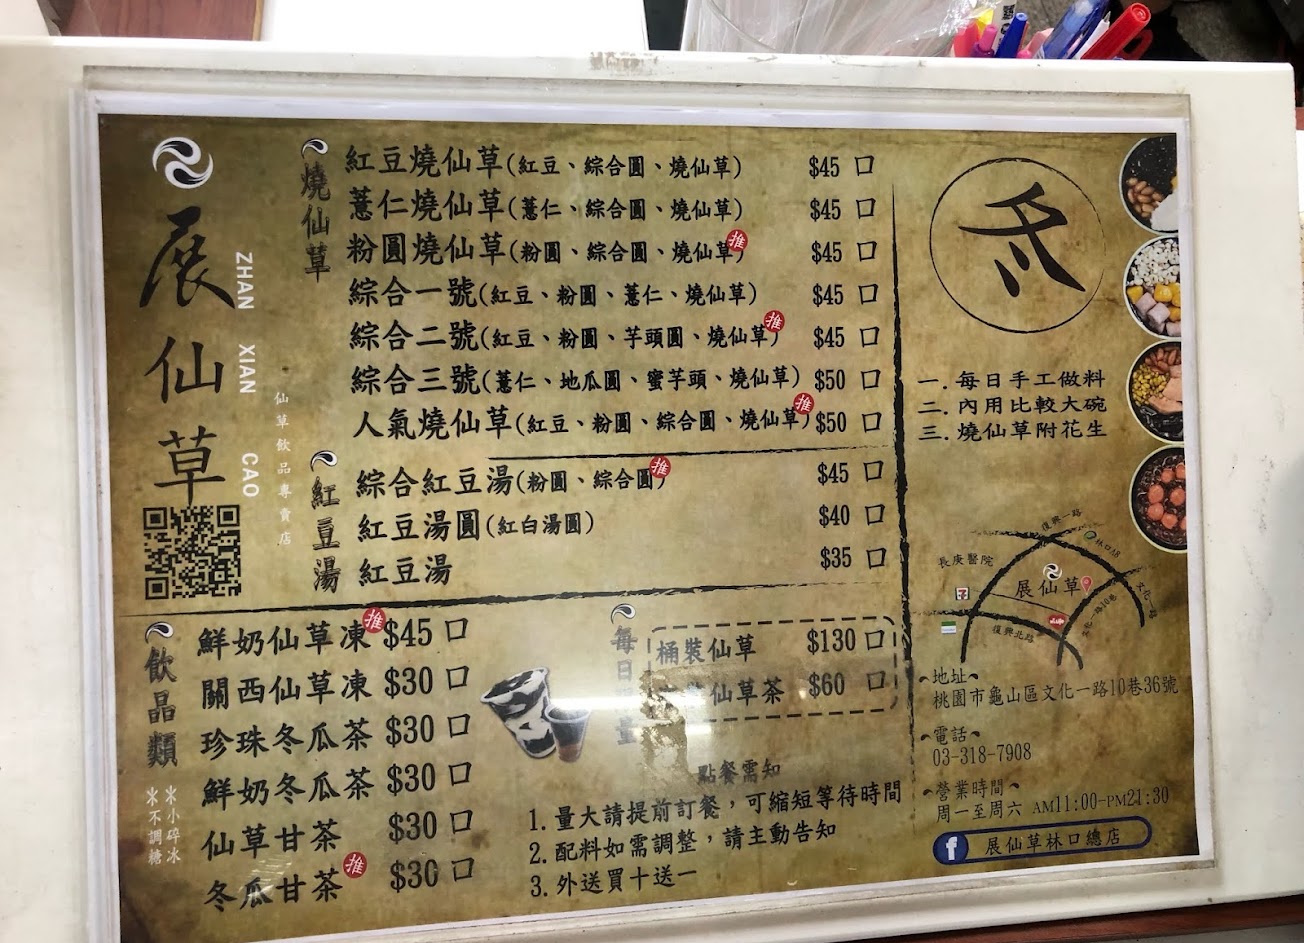 展仙草
ZHAN XIAN CAO
仙草飲品專賣店
燒仙草
紅豆燒仙草(紅豆、綜合圓、燒仙草) $45 口
薏仁燒仙草(薏仁、綜合圓、燒仙草) $45 口
粉圓燒仙草(粉圓、綜合圓、燒仙草) 推 $45 口
綜合一號(紅豆、粉圓、薏仁、燒仙草) $45 口
綜合二號(紅豆、粉圓、芋頭圓、燒仙草) 推 $45 口
綜合三號(薏仁、地瓜圓、蜜芋頭、燒仙草) $50 口
人氣燒仙草(紅豆、粉圓、綜合圓、燒仙草) 推 $50 口
紅豆湯
綜合紅豆湯(粉圓、綜合圓) 推 $45 口
紅豆湯圓(紅白湯圓) $40 口
紅豆湯 $35 口
飲品類
※小碎冰
※不調糖
鮮奶仙草凍 推 $45 口
關西仙草凍 $30 口
珍珠冬瓜茶 $30 口
鮮奶冬瓜茶 $30 口
仙草甘茶 $30 口
冬瓜甘茶 推 $30 口
每日 量
桶裝仙草 $130 口
仙草茶 $60 口
點餐需知
1. 量大請提前訂餐，可縮短等待時間
2. 配料如需調整，請主動告知
3. 外送買十送一
一. 每日手工做料
二. 內用比較大碗
三. 燒仙草附花生
復興一路
林口A8
長庚醫院
展仙草
文化一路
文化一路10巷
復興北路
地址
桃園市龜山區文化一路10巷36號
電話
03-318-7908
營業時間
周一至周六 AM11:00-PM21:30
f 展仙草林口總店